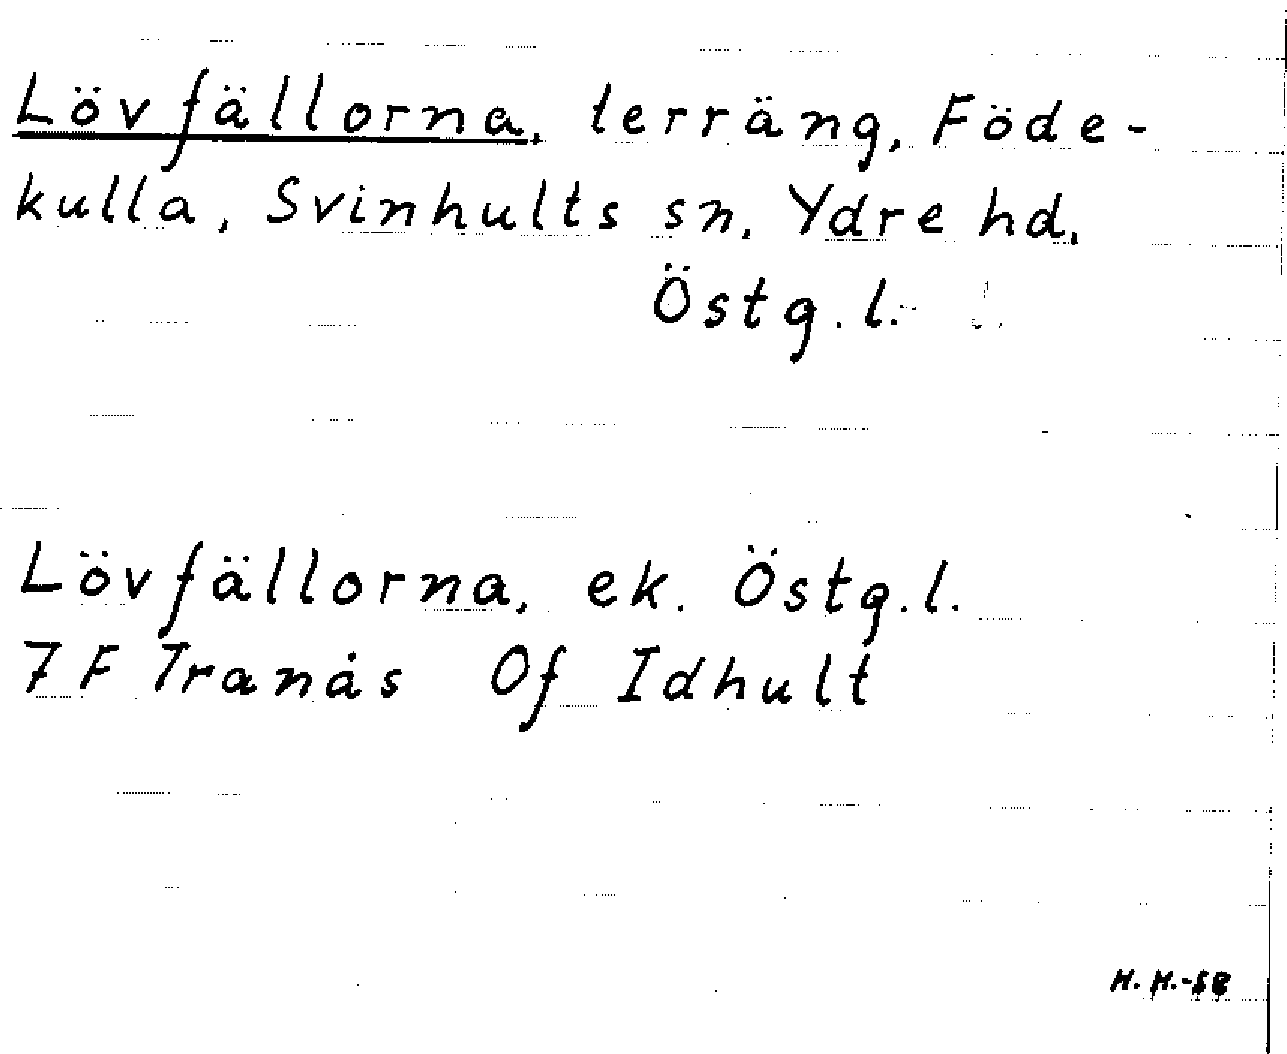 Lövfällorna, terräng, Föde-
kulla, Svinhults sn, Ydre hd,
Östg. l.
Lövfällorna, ek. Östg. l.
7 F Tranås Of Idhult
H. H.-58